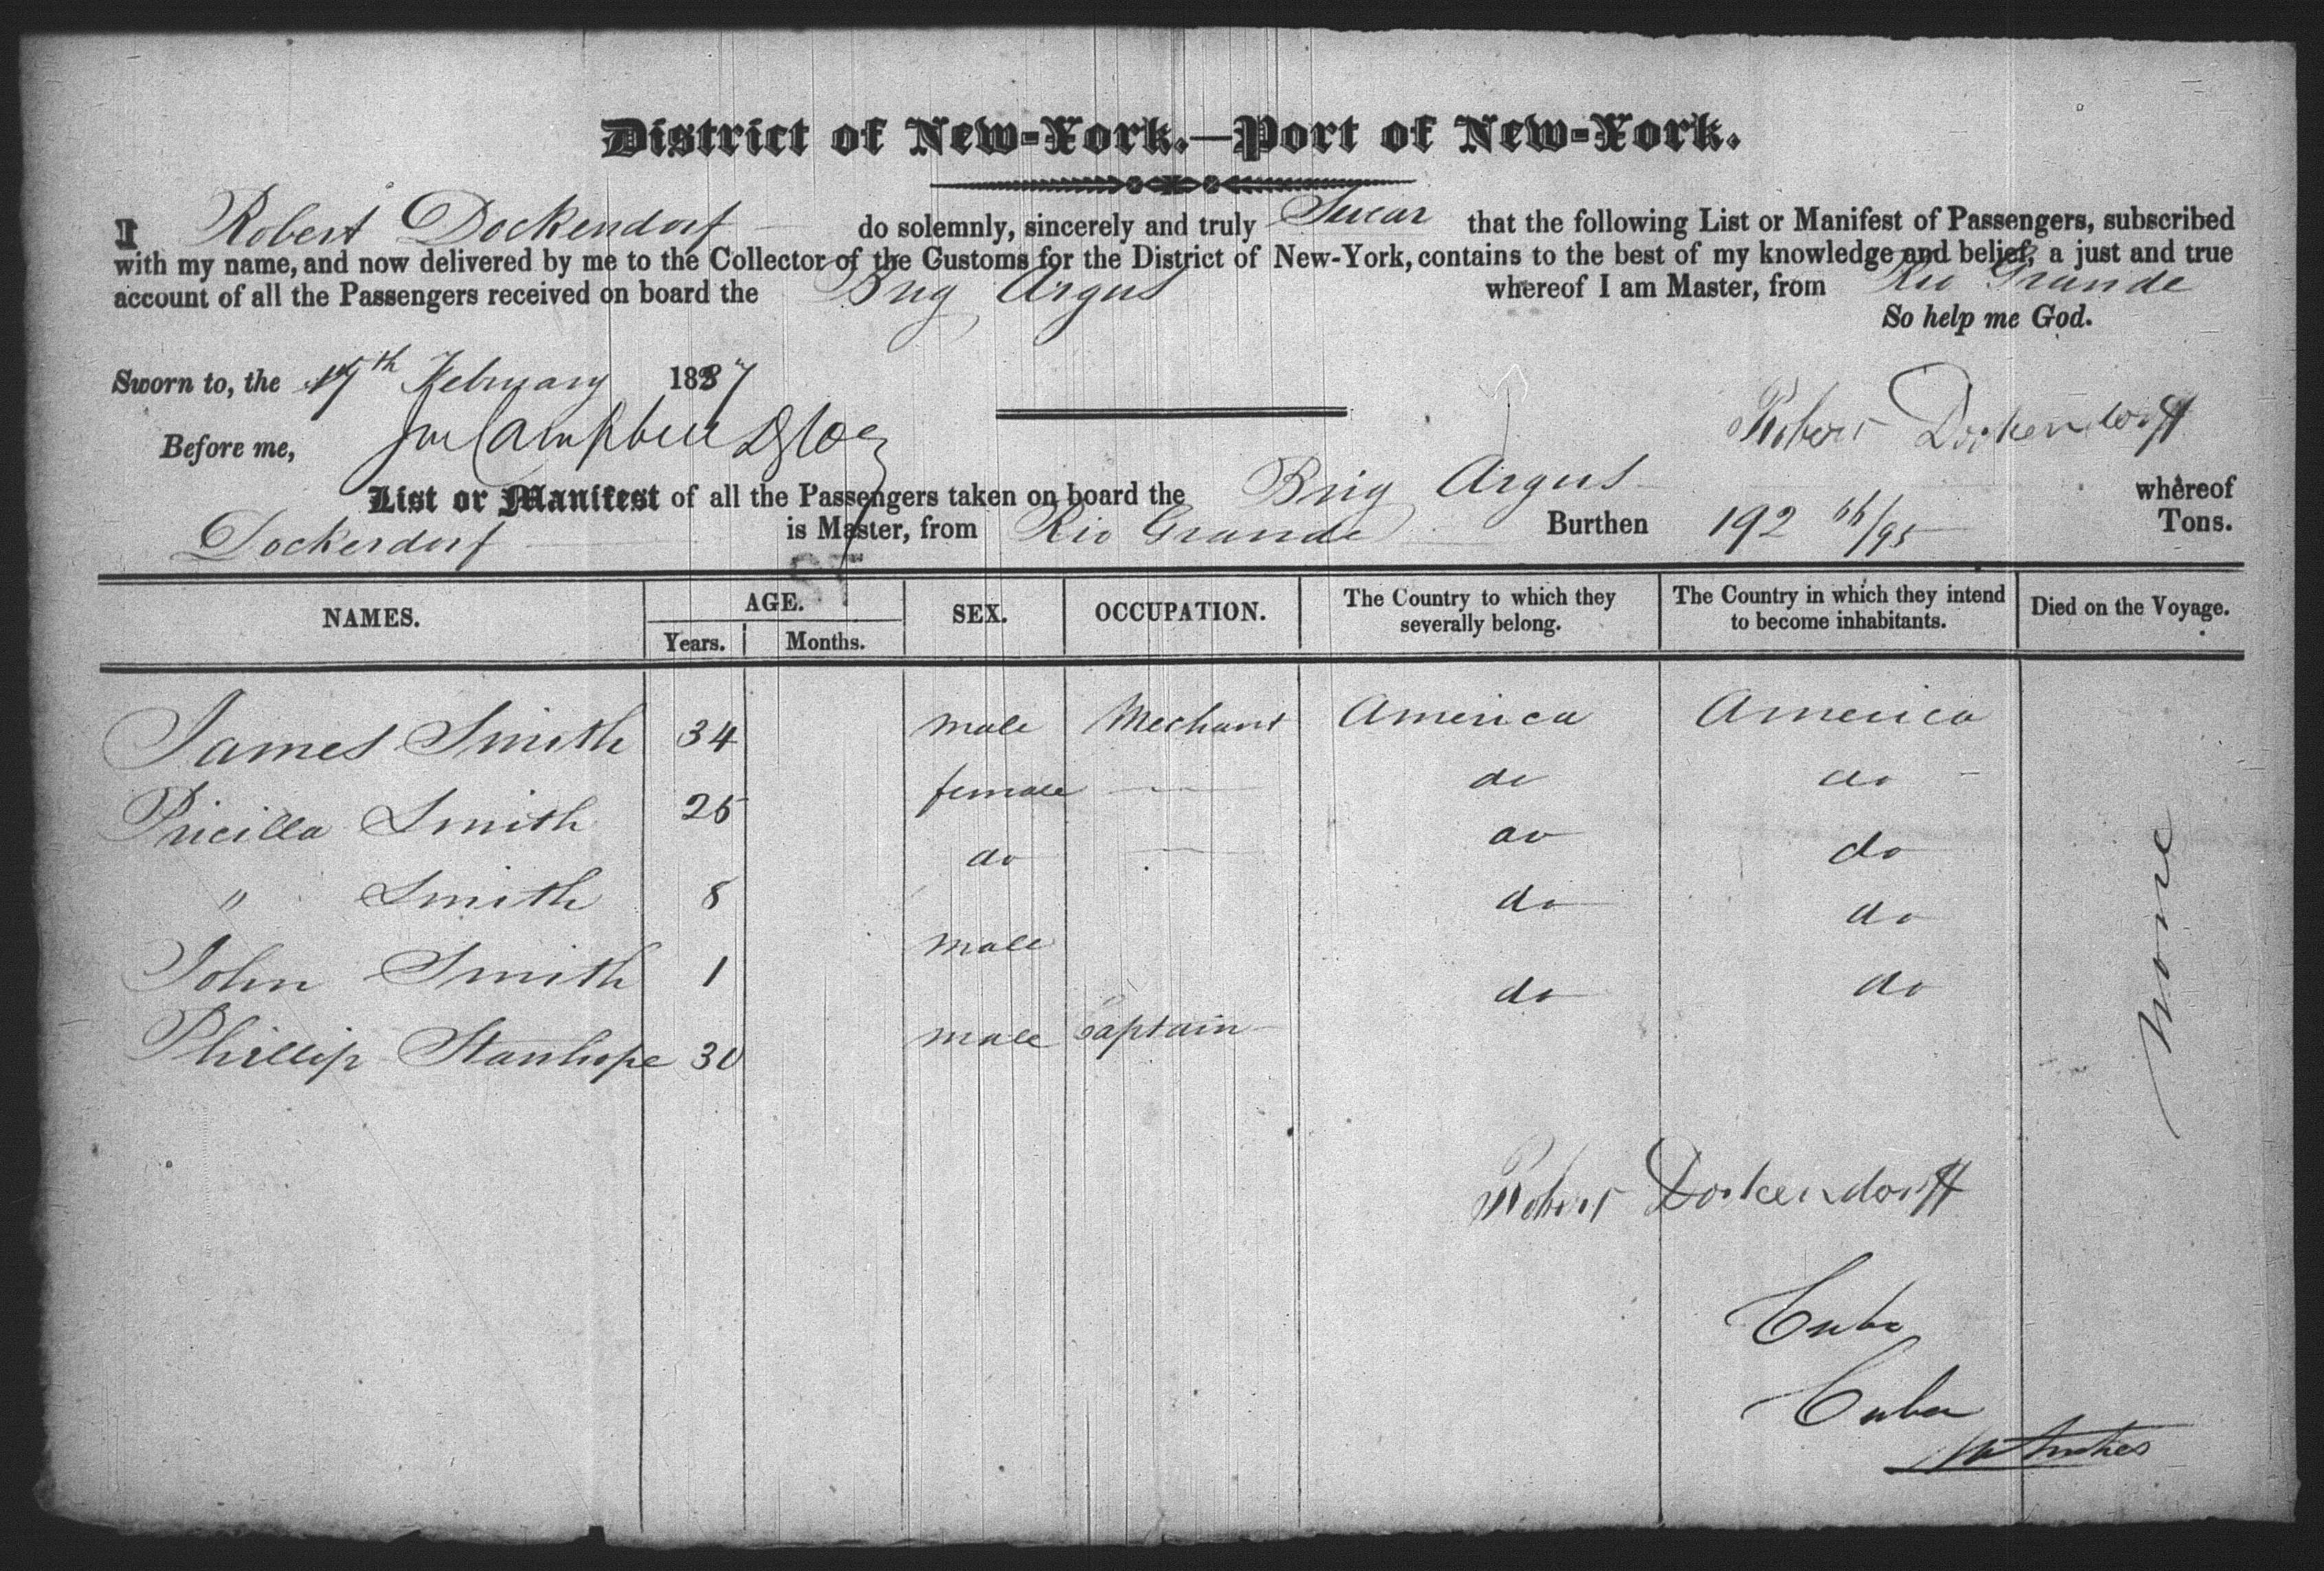 District of New-York.—Port of New-York.
I Robert Dockendorf do solemnly, sincerely and truly Swear that the following List or Manifest of Passengers, subscribed
with my name, and now delivered by me to the Collector of the Customs for the District of New-York, contains to the best of my knowledge and belief, a just and true
account of all the Passengers received on board the Brig Argus whereof I am Master, from Rio Grande
So help me God.
Sworn to, the 17th February 1837
Robert Dockendorff
Before me, Campbell
List or Manifest of all the Passengers taken on board the Brig Argus whereof
Dockendorf is Master, from Rio Grande Burthen 192 66/95 Tons.
NAMES. AGE. SEX. OCCUPATION. The Country to which they severally belong. The Country in which they intend to become inhabitants. Died on the Voyage.
Years. Months.
James Smith 34 male Mechant America America
Pricilla Smith 25 female — do do
" Smith 8 do — do do
John Smith 1 male do do
Phillip Stanhope 30 male Captain do do
None
Robert Dockendorff
Cuba
Cuba